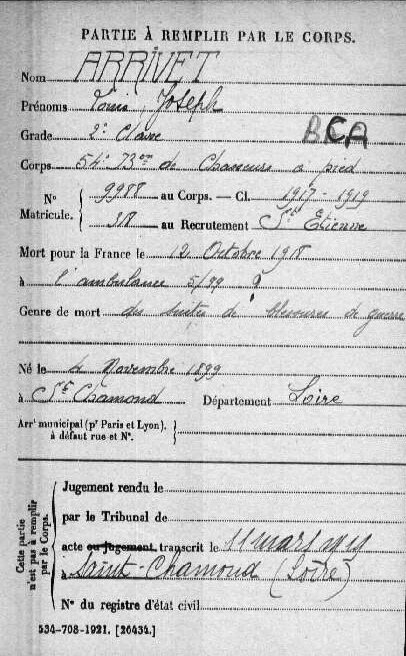 PARTIE À REMPLIR PAR LE CORPS.
Nom ARRIVET
Prénoms Louis Joseph
Grade 2e Classe
BCA
Corps 54e Bon de Chasseurs a pied
N° Matricule. { 9988 au Corps. — Cl. 1917 - 1919
318 au Recrutement St Etienne
Mort pour la France le 12 Octobre 1918
à l'ambulance 5/99
Genre de mort des suites de blessures de guerre
Né le 4 Novembre 1899
à St Chamond Département Loire
Arrt municipal (pr Paris et Lyon).
à défaut rue et N°.
Cette partie n'est pas à remplir par le Corps.
Jugement rendu le
par le Tribunal de
acte ou jugement transcrit le 11 mars 1919
à Saint-Chamond (Loire)
N° du registre d'état civil
534-708-1921. [26434.]